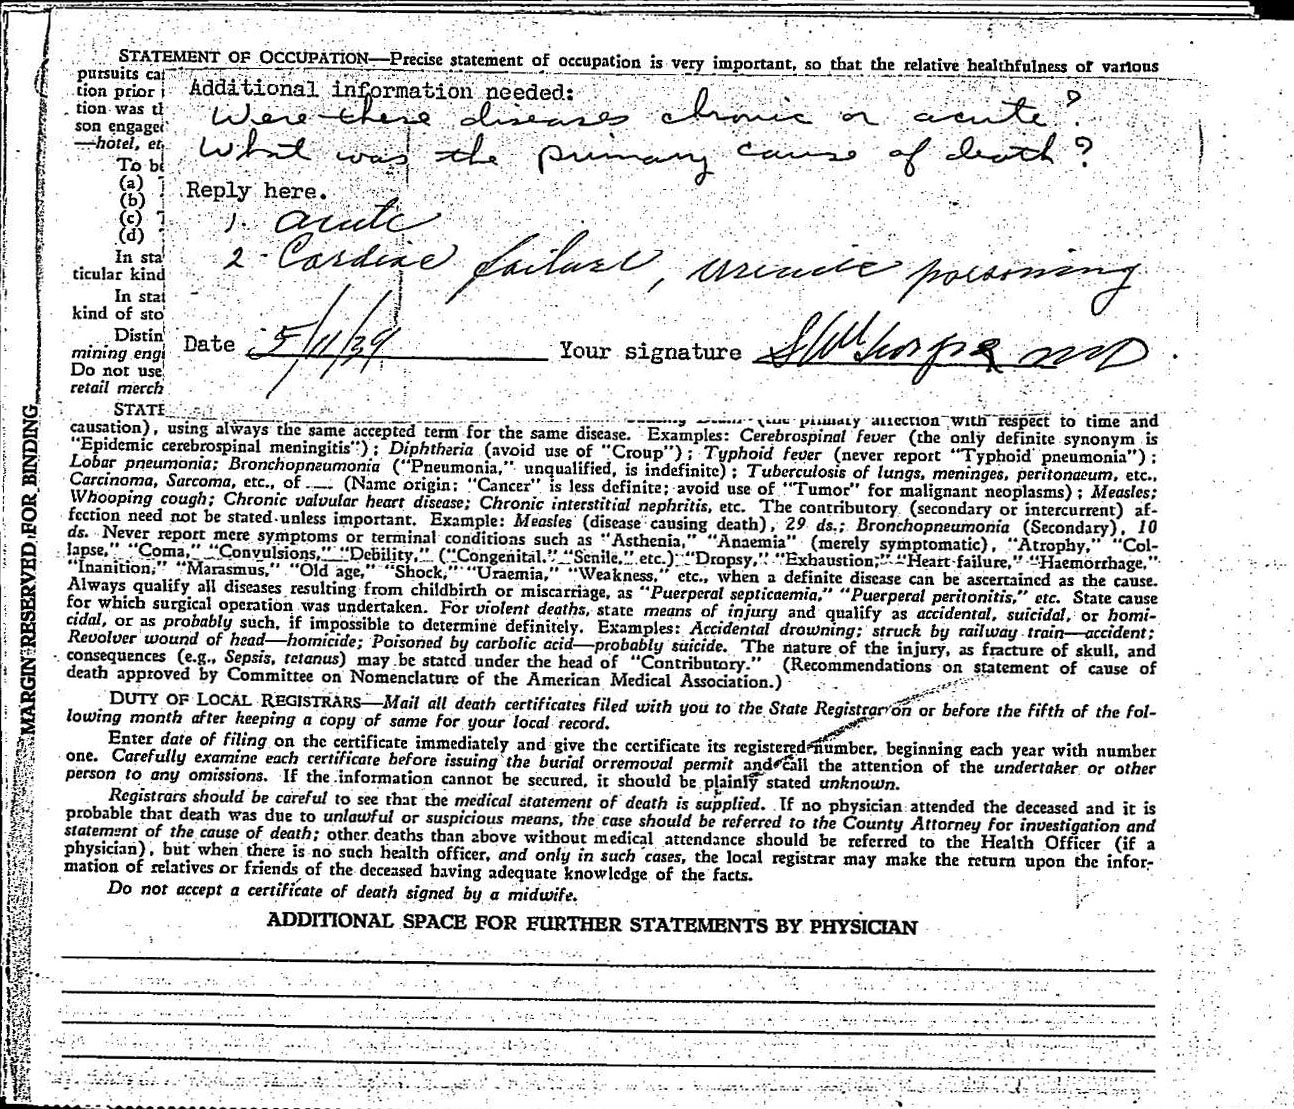 STATEMENT OF OCCUPATION—Precise statement of occupation is very important, so that the relative healthfulness of various
pursuits ca
tion prior i
tion was th
son engaged
—hotel, et
To be
(a)
(b)
(c)
(d)
In sta
ticular kind
In stat
kind of sto
Distin
mining engi
Do not use
retail merch
STATE
Additional information needed:
Were these diseases chronic or acute?
What was the primary cause of death?
Reply here.
1. acute
2. Cardiac failure, uremic poisoning
Date 5/11/39 Your signature MD
(the primary affection with respect to time and
causation), using always the same accepted term for the same disease. Examples: Cerebrospinal fever (the only definite synonym is
"Epidemic cerebrospinal meningitis"); Diphtheria (avoid use of "Croup"); Typhoid fever (never report "Typhoid pneumonia");
Lobar pneumonia; Bronchopneumonia ("Pneumonia," unqualified, is indefinite); Tuberculosis of lungs, meninges, peritonaeum, etc.,
Carcinoma, Sarcoma, etc., of ..... (Name origin: "Cancer" is less definite; avoid use of "Tumor" for malignant neoplasms); Measles;
Whooping cough; Chronic valvular heart disease; Chronic interstitial nephritis, etc. The contributory (secondary or intercurrent) af-
fection need not be stated unless important. Example: Measles (disease causing death), 29 ds.; Bronchopneumonia (Secondary), 10
ds. Never report mere symptoms or terminal conditions such as "Asthenia," "Anaemia" (merely symptomatic), "Atrophy," "Col-
lapse," "Coma," "Convulsions," "Debility," ("Congenital," "Senile," etc.) "Dropsy," "Exhaustion," "Heart failure," "Haemorrhage,"
"Inanition," "Marasmus," "Old age," "Shock," "Uraemia," "Weakness," etc., when a definite disease can be ascertained as the cause.
Always qualify all diseases resulting from childbirth or miscarriage, as "Puerperal septicaemia," "Puerperal peritonitis," etc. State cause
for which surgical operation was undertaken. For violent deaths, state means of injury and qualify as accidental, suicidal, or homi-
cidal, or as probably such, if impossible to determine definitely. Examples: Accidental drowning; struck by railway train—accident;
Revolver wound of head—homicide; Poisoned by carbolic acid—probably suicide. The nature of the injury, as fracture of skull, and
consequences (e.g., Sepsis, tetanus) may be stated under the head of "Contributory." (Recommendations on statement of cause of
death approved by Committee on Nomenclature of the American Medical Association.)
DUTY OF LOCAL REGISTRARS—Mail all death certificates filed with you to the State Registrar on or before the fifth of the fol-
lowing month after keeping a copy of same for your local record.
Enter date of filing on the certificate immediately and give the certificate its registered number, beginning each year with number
one. Carefully examine each certificate before issuing the burial orremoval permit and call the attention of the undertaker or other
person to any omissions. If the information cannot be secured, it should be plainly stated unknown.
Registrars should be careful to see that the medical statement of death is supplied. If no physician attended the deceased and it is
probable that death was due to unlawful or suspicious means, the case should be referred to the County Attorney for investigation and
statement of the cause of death; other deaths than above without medical attendance should be referred to the Health Officer (if a
physician), but when there is no such health officer, and only in such cases, the local registrar may make the return upon the infor-
mation of relatives or friends of the deceased having adequate knowledge of the facts.
Do not accept a certificate of death signed by a midwife.
ADDITIONAL SPACE FOR FURTHER STATEMENTS BY PHYSICIAN
MARGIN RESERVED FOR BINDING